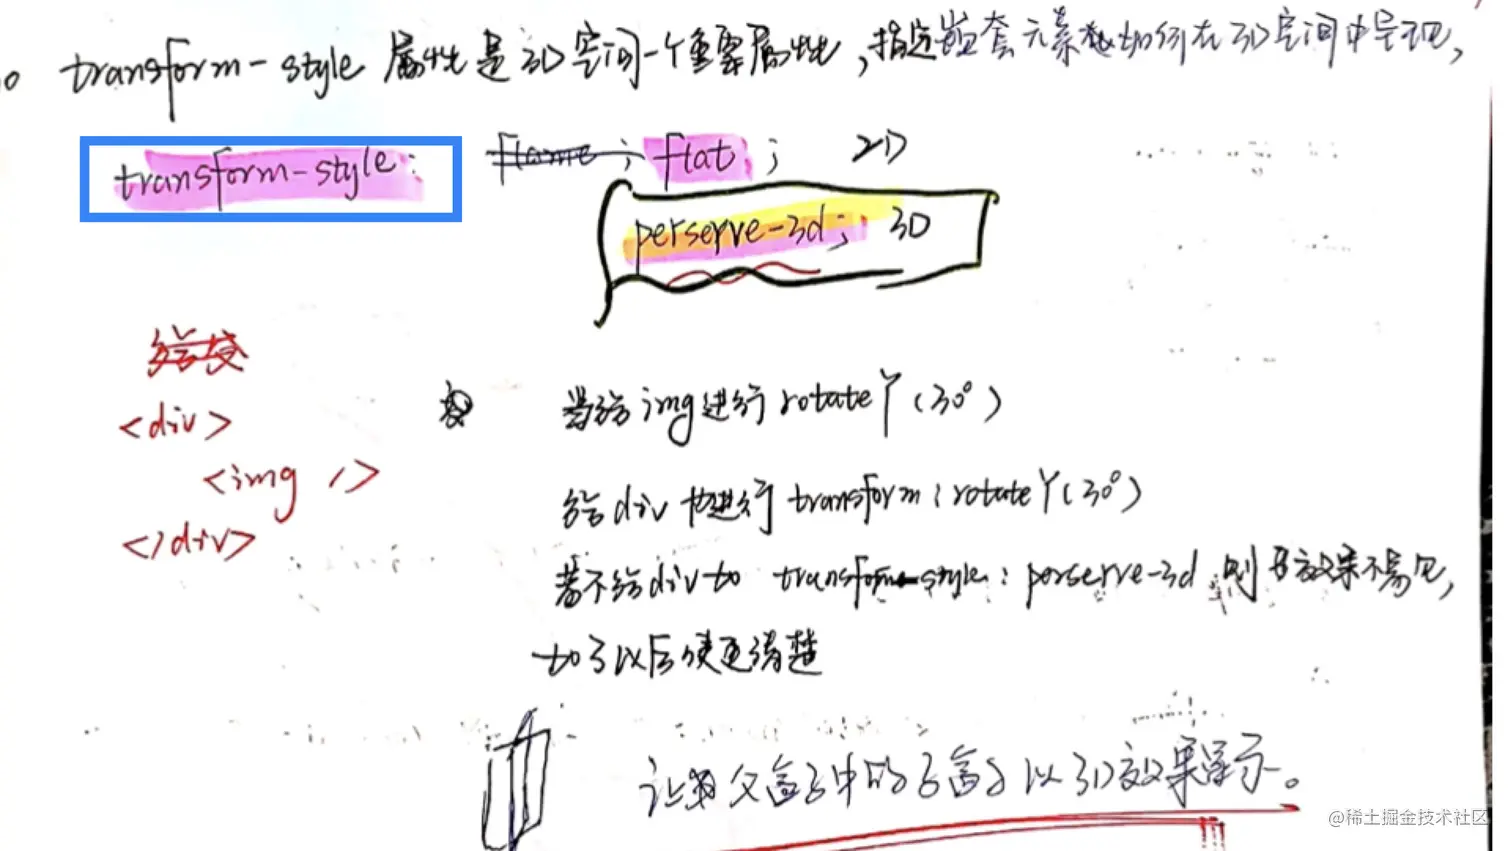 transform-style 属性是3D空间一个重要属性,指定嵌套元素如何在3D空间中呈现,
transform-style: flame; flat; 2D
perserve-3d; 3D
<div>
当给img进行rotateY(30°)
<img />
给div也进行transform:rotateY(30°)
</div>
若不给div加 transform-style:perserve-3d 则 效果不易见,
加了以后便更清楚
让 父盒子中的子盒子以3D效果展示。
@稀土掘金技术社区